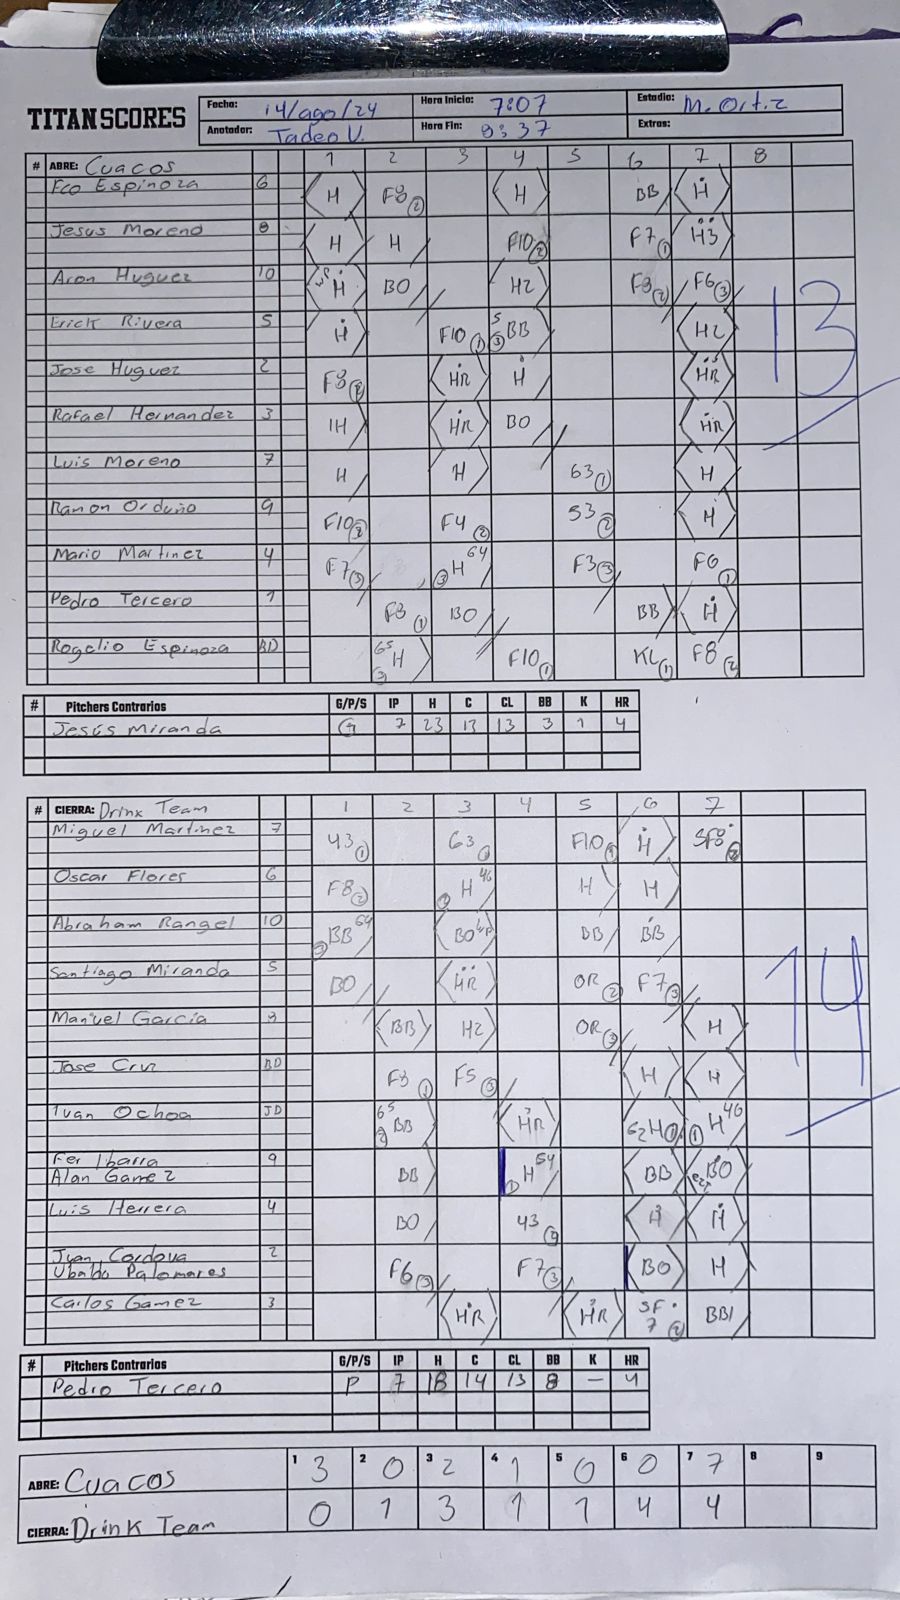 TITAN SCORES
Fecha: 14/ago/24 Hora Inicio: 7:07 Estadio: M. Ortiz
Anotador: Tadeo V. Hora Fin: 9:37 Extras:
# ABRE: Cuacos 1 2 3 4 5 6 7 8
Fco Espinoza 6 H F8 2 H BB H
Jesus Moreno 8 H H F10 2 F7 1 H3
Aron Huguez 10 H BO H2 F8 2 F6 3
Erick Rivera 5 H F10 1 5 3 BB H2
Jose Huguez 2 F8 2 HR H HR
Rafael Hernandez 3 1H HR BO HR
Luis Moreno 7 H H 63 1 H
Ramon Orduño 9 F10 2 F4 2 53 2 H
Mario Martinez 4 F7 3 3 H 64 F3 3 F6 1
Pedro Tercero 1 F8 1 BO BB H
Rogelio Espinoza BD 65 H F10 1 KL 1 F8 2
13
# Pitchers Contrarios G/P/S IP H C CL BB K HR
Jesús Miranda G 7 23 13 13 3 1 4
# CIERRA: Drink Team 1 2 3 4 5 6 7
Miguel Martinez 7 43 1 63 F10 1 H SF8 2
Oscar Flores 6 F8 2 H 46 H H
Abraham Rangel 10 BB 64 BO BB BB
Santiago Miranda 5 BO HR OR 2 F7 3
Manuel Garcia BB H2 OR 3 H
Jose Cruz BD F8 1 F5 3 H H
Ivan Ochoa JD 65 2 BB HR 62H 1 1 H 46
Fer Ibarra 9 BB 1 H 54 BB BO
Alan Gamez
Luis Herrera 4 BO 43 H H
Juan Cordova 2 F6 3 F7 3 BO H
Ubaldo Palomares
Carlos Gamez 3 HR HR SF 7 2 BB
14
# Pitchers Contrarios G/P/S IP H C CL BB K HR
Pedro Tercero P 7 18 14 13 8 — 4
1 2 3 4 5 6 7 8 9
ABRE: Cuacos 3 0 2 1 0 0 7
CIERRA: Drink Team 0 1 3 1 1 4 4